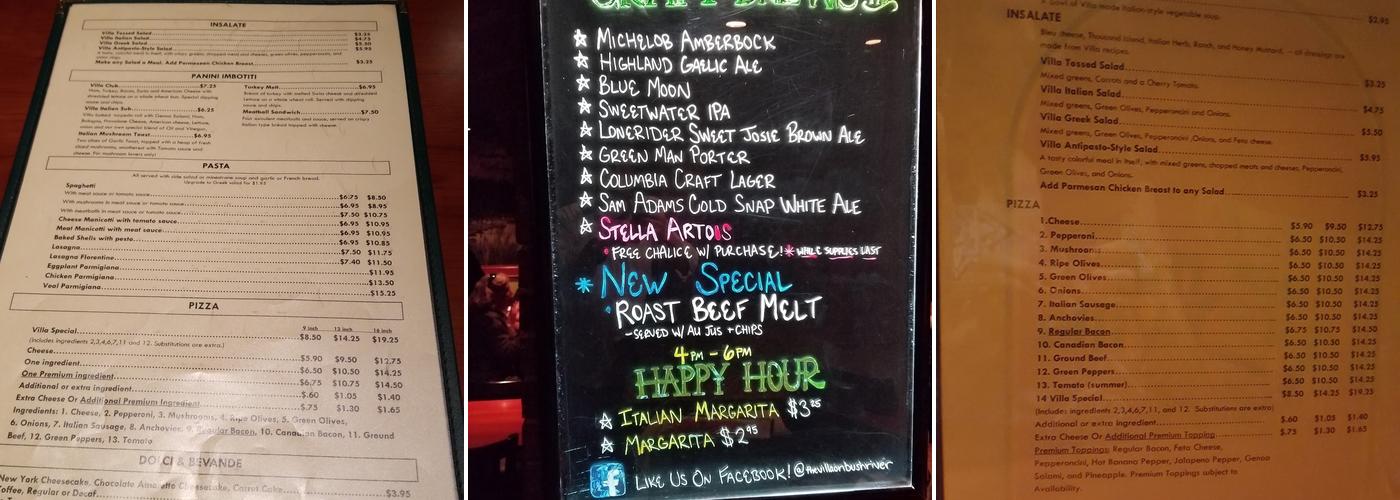 INSALATE
Villa Tossed Salad $3.25
Villa Italian Salad $4.75
Villa Greek Salad $5.50
Villa Antipasto-Style Salad $5.95
A tasty, colorful meal in itself, with crispy greens, chopped meat and cheeses, green olives, pepperoncini, and
Make any Salad a Meal. Add Parmesean Chicken Breast $3.25
PANINI IMBOTITI
Villa Club $7.25
Ham, Turkey, Bacon, Swiss and American Cheese with
shredded lettuce on a whole wheat bun. Special dipping
sauce and chips.
Villa Italian Sub $6.25
Villa baked torpedo roll with Genoa Salami, Ham,
Bologna, Provolone Cheese, American cheese, Lettuce,
onion and our own special blend of Oil and Vinegar.
Italian Mushroom Toast $6.95
Two slices of Garlic Toast, topped with a heap of fresh
sliced mushrooms, smothered with Tomato sauce and
cheese. For mushroom lovers only!
Turkey Melt $6.95
Breast of turkey with melted Swiss cheese and shredded
Lettuce on a whole wheat roll. Served with dipping
sauce and chips.
Meatball Sandwich $7.50
Four succulent meatballs and sauce, served on crispy
Italian type bread topped with cheese.
PASTA
All served with side salad or minestrone soup and garlic or French bread.
Upgrade to Greek salad for $1.95
Spaghetti
With meat sauce or tomato sauce $6.75 $8.50
With mushrooms in meat sauce or tomato sauce $6.95 $8.95
With meatballs in meat sauce or tomato sauce $7.50 $10.75
Cheese Manicotti with tomato sauce $6.95 $10.95
Meat Manicotti with meat sauce $6.95 $10.95
Baked Shells with pesto $6.95 $10.85
Lasagna $7.50 $11.75
Lasagna Florentine $7.40 $11.50
Eggplant Parmigiana $11.95
Chicken Parmigiana $13.50
Veal Parmigiana $15.25
PIZZA
9 inch 13 inch 16 inch
Villa Special $8.50 $14.25 $19.25
(Includes ingredients 2,3,4,6,7,11 and 12. Substitutions are extra.)
Cheese $5.90 $9.50 $12.75
One ingredient $6.50 $10.50 $14.25
One Premium ingredient $6.75 $10.75 $14.50
Additional or extra ingredient $.60 $1.05 $1.40
Extra Cheese Or Additional Premium Ingredient $.75 $1.30 $1.65
Ingredients: 1. Cheese, 2. Pepperoni, 3. Mushrooms, 4. Ripe Olives, 5. Green Olives,
6. Onions, 7. Italian Sausage, 8. Anchovies, 9. Regular Bacon, 10. Canadian Bacon, 11. Ground
Beef, 12. Green Peppers, 13. Tomato
DOLCI & BEVANDE
New York Cheesecake, Chocolate Amaretto Cheesecake, Carrot Cake
Coffee, Regular or Decaf $3.95
MICHELOB AMBERBOCK
HIGHLAND GAELIC ALE
BLUE MOON
SWEETWATER IPA
LONERIDER SWEET JOSIE BROWN ALE
GREEN MAN PORTER
COLUMBIA CRAFT LAGER
SAM ADAMS COLD SNAP WHITE ALE
STELLA ARTOIS
FREE CHALICE W/ PURCHASE! * WHILE SUPPLIES LAST
* NEW SPECIAL
ROAST BEEF MELT
- SERVED W/ AU JUS + CHIPS
4PM - 6PM
HAPPY HOUR
ITALIAN MARGARITA $3.25
MARGARITA $2.95
LIKE US ON FACEBOOK! @thevillaonbushriver
A bowl of Villa made Italian-style vegetable soup. $2.95
INSALATE
Bleu cheese, Thousand Island, Italian Herb, Ranch, and Honey Mustard, – all dressings are
made from Villa recipes.
Villa Tossed Salad $3.25
Mixed greens, Carrots and a Cherry Tomato.
Villa Italian Salad $4.75
Mixed greens, Green Olives, Pepperoncini and Onions.
Villa Greek Salad $5.50
Mixed greens, Green Olives, Pepperoncini, Onions, and Feta cheese.
Villa Antipasto-Style Salad $5.95
A tasty colorful meal in itself, with mixed greens, chopped meats and cheeses, Pepperoncini,
Green Olives, and Onions.
Add Parmesan Chicken Breast to any Salad $3.25
PIZZA
1.Cheese $5.90 $9.50 $12.75
2. Pepperoni $6.50 $10.50 $14.25
3. Mushrooms $6.50 $10.50 $14.25
4. Ripe Olives $6.50 $10.50 $14.25
5. Green Olives $6.50 $10.50 $14.25
6. Onions $6.50 $10.50 $14.25
7. Italian Sausage $6.50 $10.50 $14.25
8. Anchovies $6.50 $10.50 $14.25
9. Regular Bacon $6.75 $10.75 $14.50
10. Canadian Bacon $6.50 $10.50 $14.25
11. Ground Beef $6.50 $10.50 $14.25
12. Green Peppers $6.50 $10.50 $14.25
13. Tomato (summer) $6.50 $10.50 $14.25
14 Villa Special $8.50 $14.25 $19.25
(Includes ingredients 2,3,4,6,7,11, and 12. Substitutions are extra)
Additional or extra ingredient $.60 $1.05 $1.40
Extra Cheese Or Additional Premium Topping $.75 $1.30 $1.65
Premium Toppings: Regular Bacon, Feta Cheese,
Pepperoncini, Hot Banana Pepper, Jalapeno Pepper, Genoa
Salami, and Pineapple. Premium Toppings subject to
Availability.